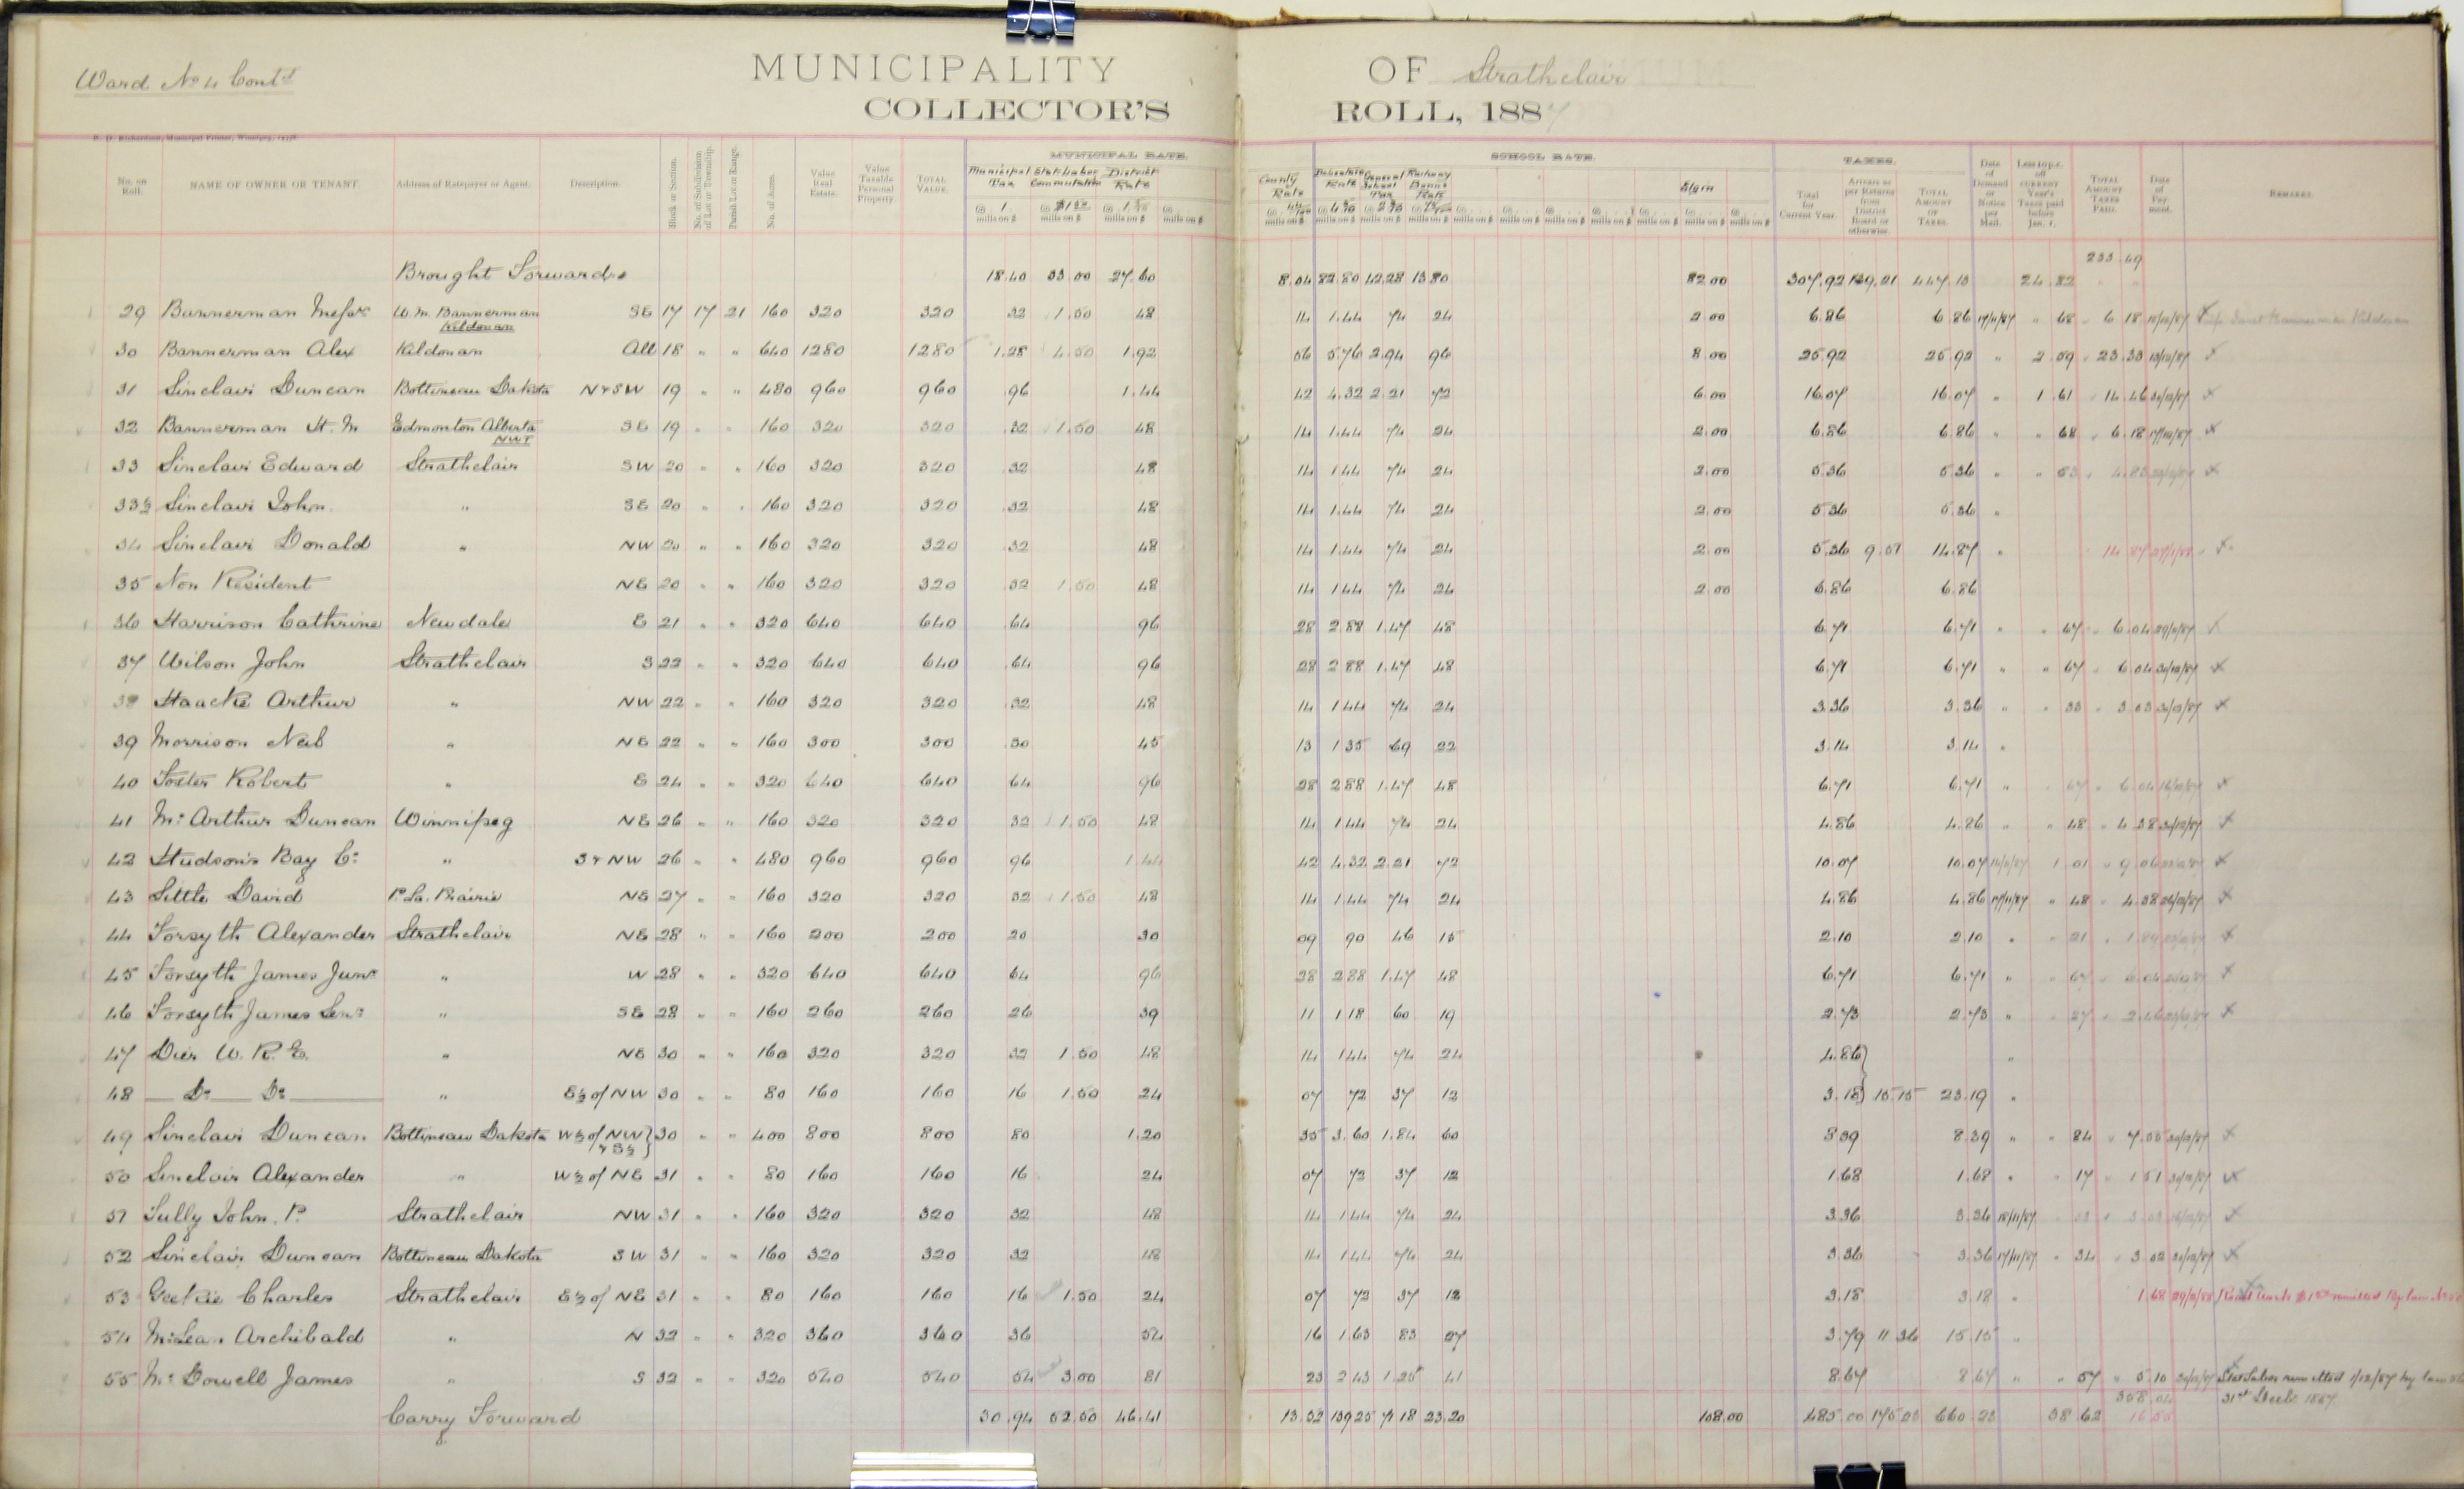 Ward No 4 Contd
MUNICIPALITY OF Strathclair
COLLECTOR'S ROLL, 1887
No. on Roll. NAME OF OWNER OR TENANT. Address of Ratepayer or Agent. Description. Block or Section. No. of Subdivision of Lot or Township. Parish Lot or Range. No. of Acres. Value Real Estate. Value Taxable Personal Property TOTAL VALUE. MUNICIPAL RATE. Municipal Tax Stat Labor Commutation District Rate SCHOOL RATE. County Rate General School Tax Railway Bonus Rate Elgin TAXES. Total for Current Year. Arrears as per Returns from District Board or otherwise. TOTAL AMOUNT OF TAXES. Date of Demand or Notice per Mail. Less 10 p.c. off CURRENT Year's Taxes paid before Jan. 1. TOTAL AMOUNT TAXES PAID. Date of Payment. REMARKS.
233.49
Brought Forward 18.40 33.00 27.60 8.04 82.80 42.28 13.80 82.00 307.92 139.21 447.13 24.82
29 Bannerman W.m. Bannerman Kildonan SE 17 17 21 160 320 320 32 1.50 48 14 1.44 74 24 2.00 6.86 6.86 17/11/87 " 68 6.18
30 Bannerman Alex Kildonan All 18 " " 640 1280 1280 1.28 4.50 1.92 56 5.76 2.94 96 8.00 25.92 25.92 " 2.59 23.33
31 Sinclair Duncan Bottineau Dakota N & SW 19 " " 480 960 960 96 1.44 42 4.32 2.21 72 6.00 16.07 16.07 " 1.61 14.46
32 Bannerman H. M Edmonton Alberta NWT SE 19 " " 160 320 320 32 1.50 48 14 1.44 74 24 2.00 6.86 6.86 " " 68 6.18
33 Sinclair Edward Strathclair SW 20 " " 160 320 320 32 48 14 1.44 74 24 2.00 5.36 5.36 " " 53 4.83
33½ Sinclair John " SE 20 " " 160 320 320 32 48 14 1.44 74 24 2.00 5.36 5.36 "
34 Sinclair Donald " NW 20 " " 160 320 320 32 48 14 1.44 74 24 2.00 5.36 9.51 14.87 " 14.87
35 Non Resident NE 20 " " 160 320 320 32 1.50 48 14 1.44 74 24 2.00 6.86 6.86
36 Harrison Cathrine Newdale E 21 " " 320 640 640 64 96 28 2.88 1.47 48 6.71 6.71 " " 67 6.04
37 Wilson John Strathclair S 22 " " 320 640 640 64 96 28 2.88 1.47 48 6.71 6.71 " " 67 6.04
38 Haacke Arthur " NW 22 " " 160 320 320 32 48 14 1.44 74 24 3.36 3.36 " " 33 3.03
39 Morrison Neil " NE 22 " " 160 300 300 30 45 13 1.35 69 22 3.14 3.14 "
40 Foster Robert " E 24 " " 320 640 640 64 96 28 2.88 1.47 48 6.71 6.71 " " 67 6.04
41 Mc Arthur Duncan Winnipeg NE 26 " " 160 320 320 32 1.50 48 14 1.44 74 24 4.86 4.86 " " 48 4.38
42 Hudson's Bay Co " S & NW 26 " " 480 960 960 96 1.44 42 4.32 2.21 72 10.07 10.07 1.01 9.06
43 Little David P. La. Prairie NE 27 " " 160 320 320 32 1.50 48 14 1.44 74 24 4.86 4.86 17/11/87 " 48 4.38
44 Forsyth Alexander Strathclair NE 28 " " 160 200 200 20 30 09 90 46 15 2.10 2.10 " " 21 1.89
45 Forsyth James Junr " W 28 " " 320 640 640 64 96 28 2.88 1.47 48 6.71 6.71 " " 67 6.04
46 Forsyth James Senr " SE 28 " " 160 260 260 26 39 11 1.18 60 19 2.73 2.73 " " 27 2.46
47 Dier W. R. E. " NE 30 " " 160 320 320 32 1.50 48 14 1.44 74 24 4.86 "
48 Do Do " E½ of NW 30 " " 80 160 160 16 1.50 24 07 72 37 12 3.18 15.15 23.19 "
49 Sinclair Duncan Bottineau Dakota W½ of NW & S½ 30 " " 400 800 800 80 1.20 35 3.60 1.84 60 8.39 8.39 " " 84 7.55
50 Sinclair Alexander " W½ of NE 31 " " 80 160 160 16 24 07 72 37 12 1.68 1.68 " " 17 1.51
51 Tully John. P. Strathclair NW 31 " " 160 320 320 32 48 14 1.44 74 24 3.36 3.36 18/11/87 33 3.03
52 Sinclair Duncan Bottineau Dakota SW 31 " " 160 320 320 32 48 14 1.44 74 24 3.36 3.36 17/11/87 " 34 3.02
53 Charles Strathclair E½ of NE 31 " " 80 160 160 16 1.50 24 07 72 37 12 3.18 3.18 " 1.68
54 McLean Archibald " N 32 " " 320 360 360 36 54 16 1.63 83 27 3.79 11.36 15.15 "
55 Mc Dowell James " S 32 " " 320 540 540 54 3.00 81 23 2.43 1.25 41 8.67 8.67 " " 57 5.10
308.04 31st Decb. 1887
Carry Forward 30.94 52.50 46.41 13.52 139.25 71.18 23.20 108.00 485.00 175.23 660.23 38.62 16.55